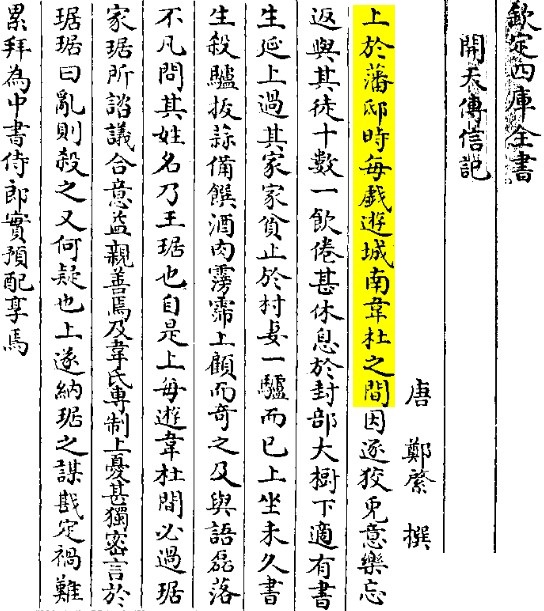 欽定四庫全書
開天傳信記
唐 鄭綮 撰
上於藩邸時每戯遊城南韋杜之間因逐狡兎意樂忘
返與其徒十數一飲倦甚休息於封部大樹下適有書
生延上過其家家貧止於村妻一驢而已上坐未久書
生殺驢拔蒜備饌酒肉霶霈上顧而奇之及與語磊落
不凡問其姓名乃王琚也自是上每遊韋杜間必過琚
家琚所諮議合意益親善焉及韋氏專制上憂甚獨密言於
琚琚曰亂則殺之又何疑也上遂納琚之謀戡定禍難
累拜為中書侍郎實預配享焉